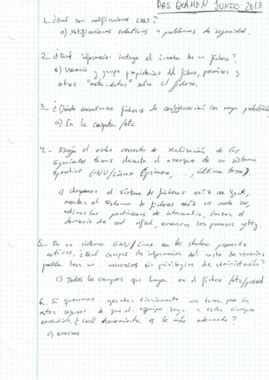 ABS EXAMEN JUNIO 2013
1.- ¿Qué son notificaciones CERT?
a) Notificaciones relativas a problemas de seguridad.
2.- ¿Qué información incluye el inodo de un fichero?
b) Usuario y grupo propietarios del fichero, permisos y
otros "meta-datos" sobre el fichero.
3.- ¿Dónde encontramos ficheros de configuración con mayor probabilidad?
a) En la carpeta /etc
4.- Escoja el orden correcto de realización de las
siguientes tareas durante el arranque de un sistema
operativo GNU/Linux (primera, ..., última tarea)
a) chequear el sistema de ficheros raíz con fsck,
montar el sistema de ficheros raíz en modo
activar las particiones de intercambio, lanzar el
demonio de cron, arrancar los procesos getty.
5.- En un sistema GNU/Linux con las shadow passwords
activas, ¿Qué campos de información del resto de usuarios
puede leer un usuario sin privilegios de administración?
c) Todos los campos que haya en el fichero /etc/passwd
6.- Si queremos ejecutar diariamente una tarea pero no
estamos seguros de que el equipo vaya a estar siempre
encendido, ¿cuál herramienta es la más adecuada?
a) anacron